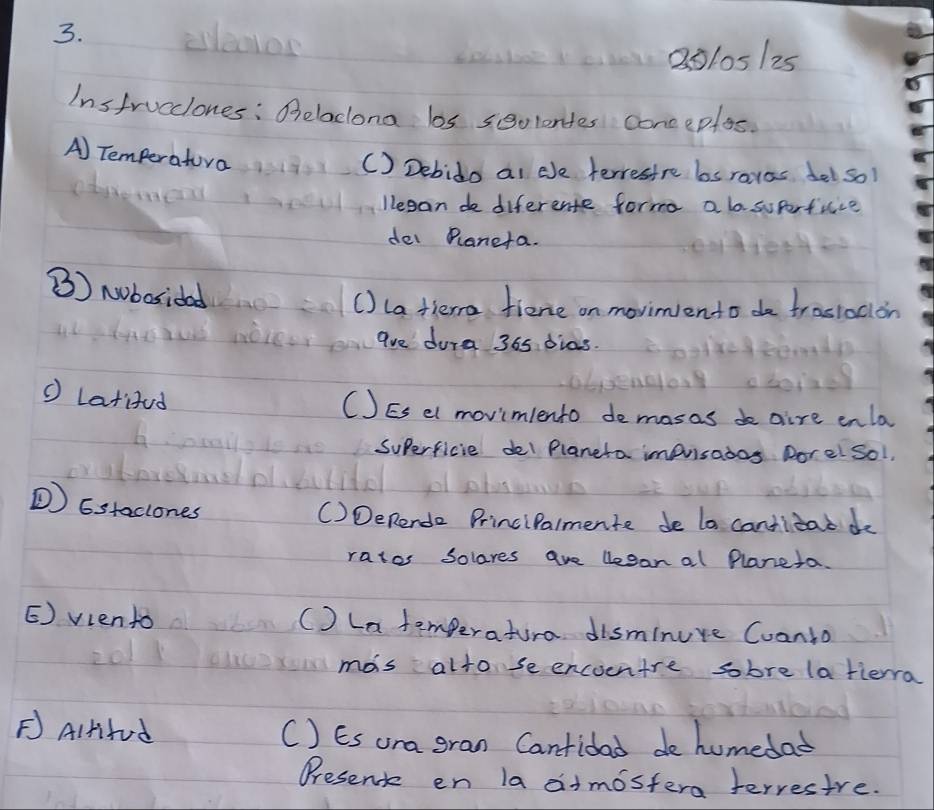 3.
28/05/25
Instrucciones: Relaciona los siguientes conceptos.
A) Temperatura () Debido al eje terrestre los rayos del sol
llegan de diferente forma a la superficie
del Planeta.
B) Nubosidad () La tierra tiene un movimiento de traslación
que dura 365 días.
C) Latitud () Es el movimiento de masas de aire en la
superficie del Planeta impulsadas por el Sol.
D) Estaciones () Depende Principalmente de la cantidad de
rayos solares que llegan al Planeta.
E) viento () La temperatura disminuye Cuanto
más alto se encuentre sobre la tierra
F) Altitud () Es una gran Cantidad de humedad
Presente en la atmósfera terrestre.